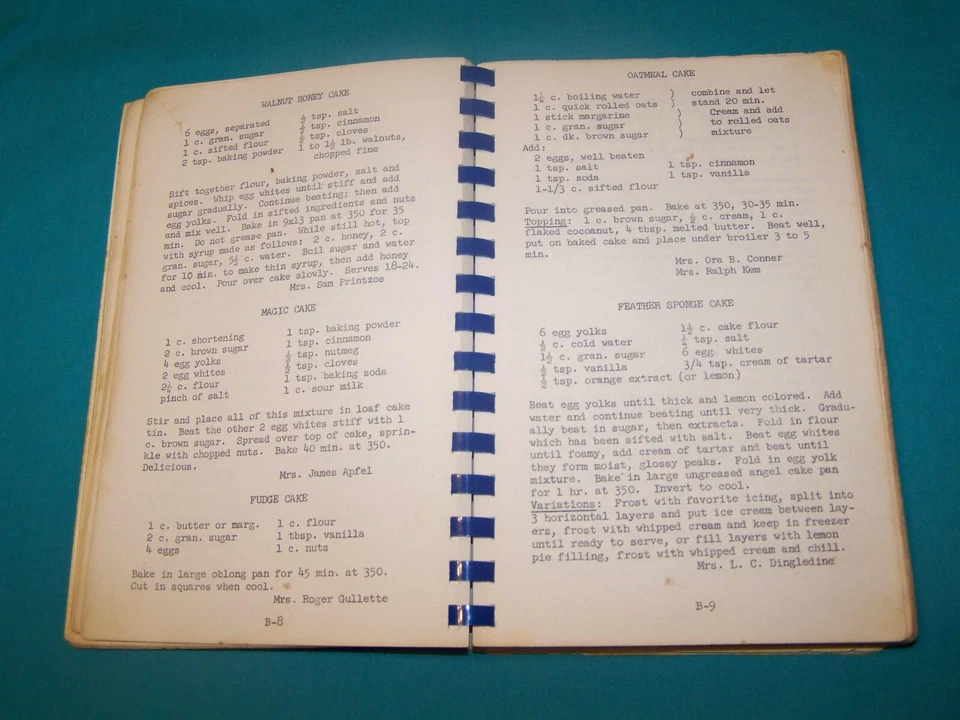 WALNUT HONEY CAKE
6 eggs, separated ½ tsp. salt
1 c. gran. sugar ½ tsp. cinnamon
1 c. sifted flour ½ tsp. cloves
2 tsp. baking powder 1 to 1½ lb. walnuts,
chopped fine
Sift together flour, baking powder, salt and
spices. Whip egg whites until stiff and add
sugar gradually. Continue beating; then add
egg yolks. Fold in sifted ingredients and nuts
and mix well. Bake in 9x13 pan at 350 for 35
min. Do not grease pan. While still hot, top
with syrup made as follows: 2 c. honey, 2 c.
gran. sugar, 5½ c. water. Boil sugar and water
for 10 min. to make thin syrup, then add honey
and cool. Pour over cake slowly. Serves 18-24.
Mrs. Sam Printzos
MAGIC CAKE
1 c. shortening 1 tsp. baking powder
2 c. brown sugar 1 tsp. cinnamon
4 egg yolks ½ tsp. nutmeg
2 egg whites ½ tsp. cloves
2¼ c. flour 1 tsp. baking soda
pinch of salt 1 c. sour milk
Stir and place all of this mixture in loaf cake
tin. Beat the other 2 egg whites stiff with 1
c. brown sugar. Spread over top of cake, sprin-
kle with chopped nuts. Bake 40 min. at 350.
Delicious.
Mrs. James Apfel
FUDGE CAKE
1 c. butter or marg. 1 c. flour
2 c. gran. sugar 1 tbsp. vanilla
4 eggs 1 c. nuts
Bake in large oblong pan for 45 min. at 350.
Cut in squares when cool.
Mrs. Roger Gullette
B-8
OATMEAL CAKE
1¼ c. boiling water ) combine and let
1 c. quick rolled oats ) stand 20 min.
1 stick margarine ) Cream and add
1 c. gran. sugar ) to rolled oats
1 c. dk. brown sugar ) mixture
Add:
2 eggs, well beaten
1 tsp. salt 1 tsp. cinnamon
1 tsp. soda 1 tsp. vanilla
1-1/3 c. sifted flour
Pour into greased pan. Bake at 350, 30-35 min.
Topping: 1 c. brown sugar, ½ c. cream, 1 c.
flaked cocoanut, 4 tbsp. melted butter. Beat well,
put on baked cake and place under broiler 3 to 5
min.
Mrs. Ora B. Conner
Mrs. Ralph Kem
FEATHER SPONGE CAKE
6 egg yolks 1½ c. cake flour
½ c. cold water ¼ tsp. salt
1½ c. gran. sugar 6 egg whites
½ tsp. vanilla 3/4 tsp. cream of tartar
½ tsp. orange extract (or lemon)
Beat egg yolks until thick and lemon colored. Add
water and continue beating until very thick. Gradu-
ally beat in sugar, then extracts. Fold in flour
which has been sifted with salt. Beat egg whites
until foamy, add cream of tartar and beat until
they form moist, glossy peaks. Fold in egg yolk
mixture. Bake in large ungreased angel cake pan
for 1 hr. at 350. Invert to cool.
Variations: Frost with favorite icing, split into
3 horizontal layers and put ice cream between lay-
ers, frost with whipped cream and keep in freezer
until ready to serve, or fill layers with lemon
pie filling, frost with whipped cream and chill.
Mrs. L. C. Dingledine
B-9